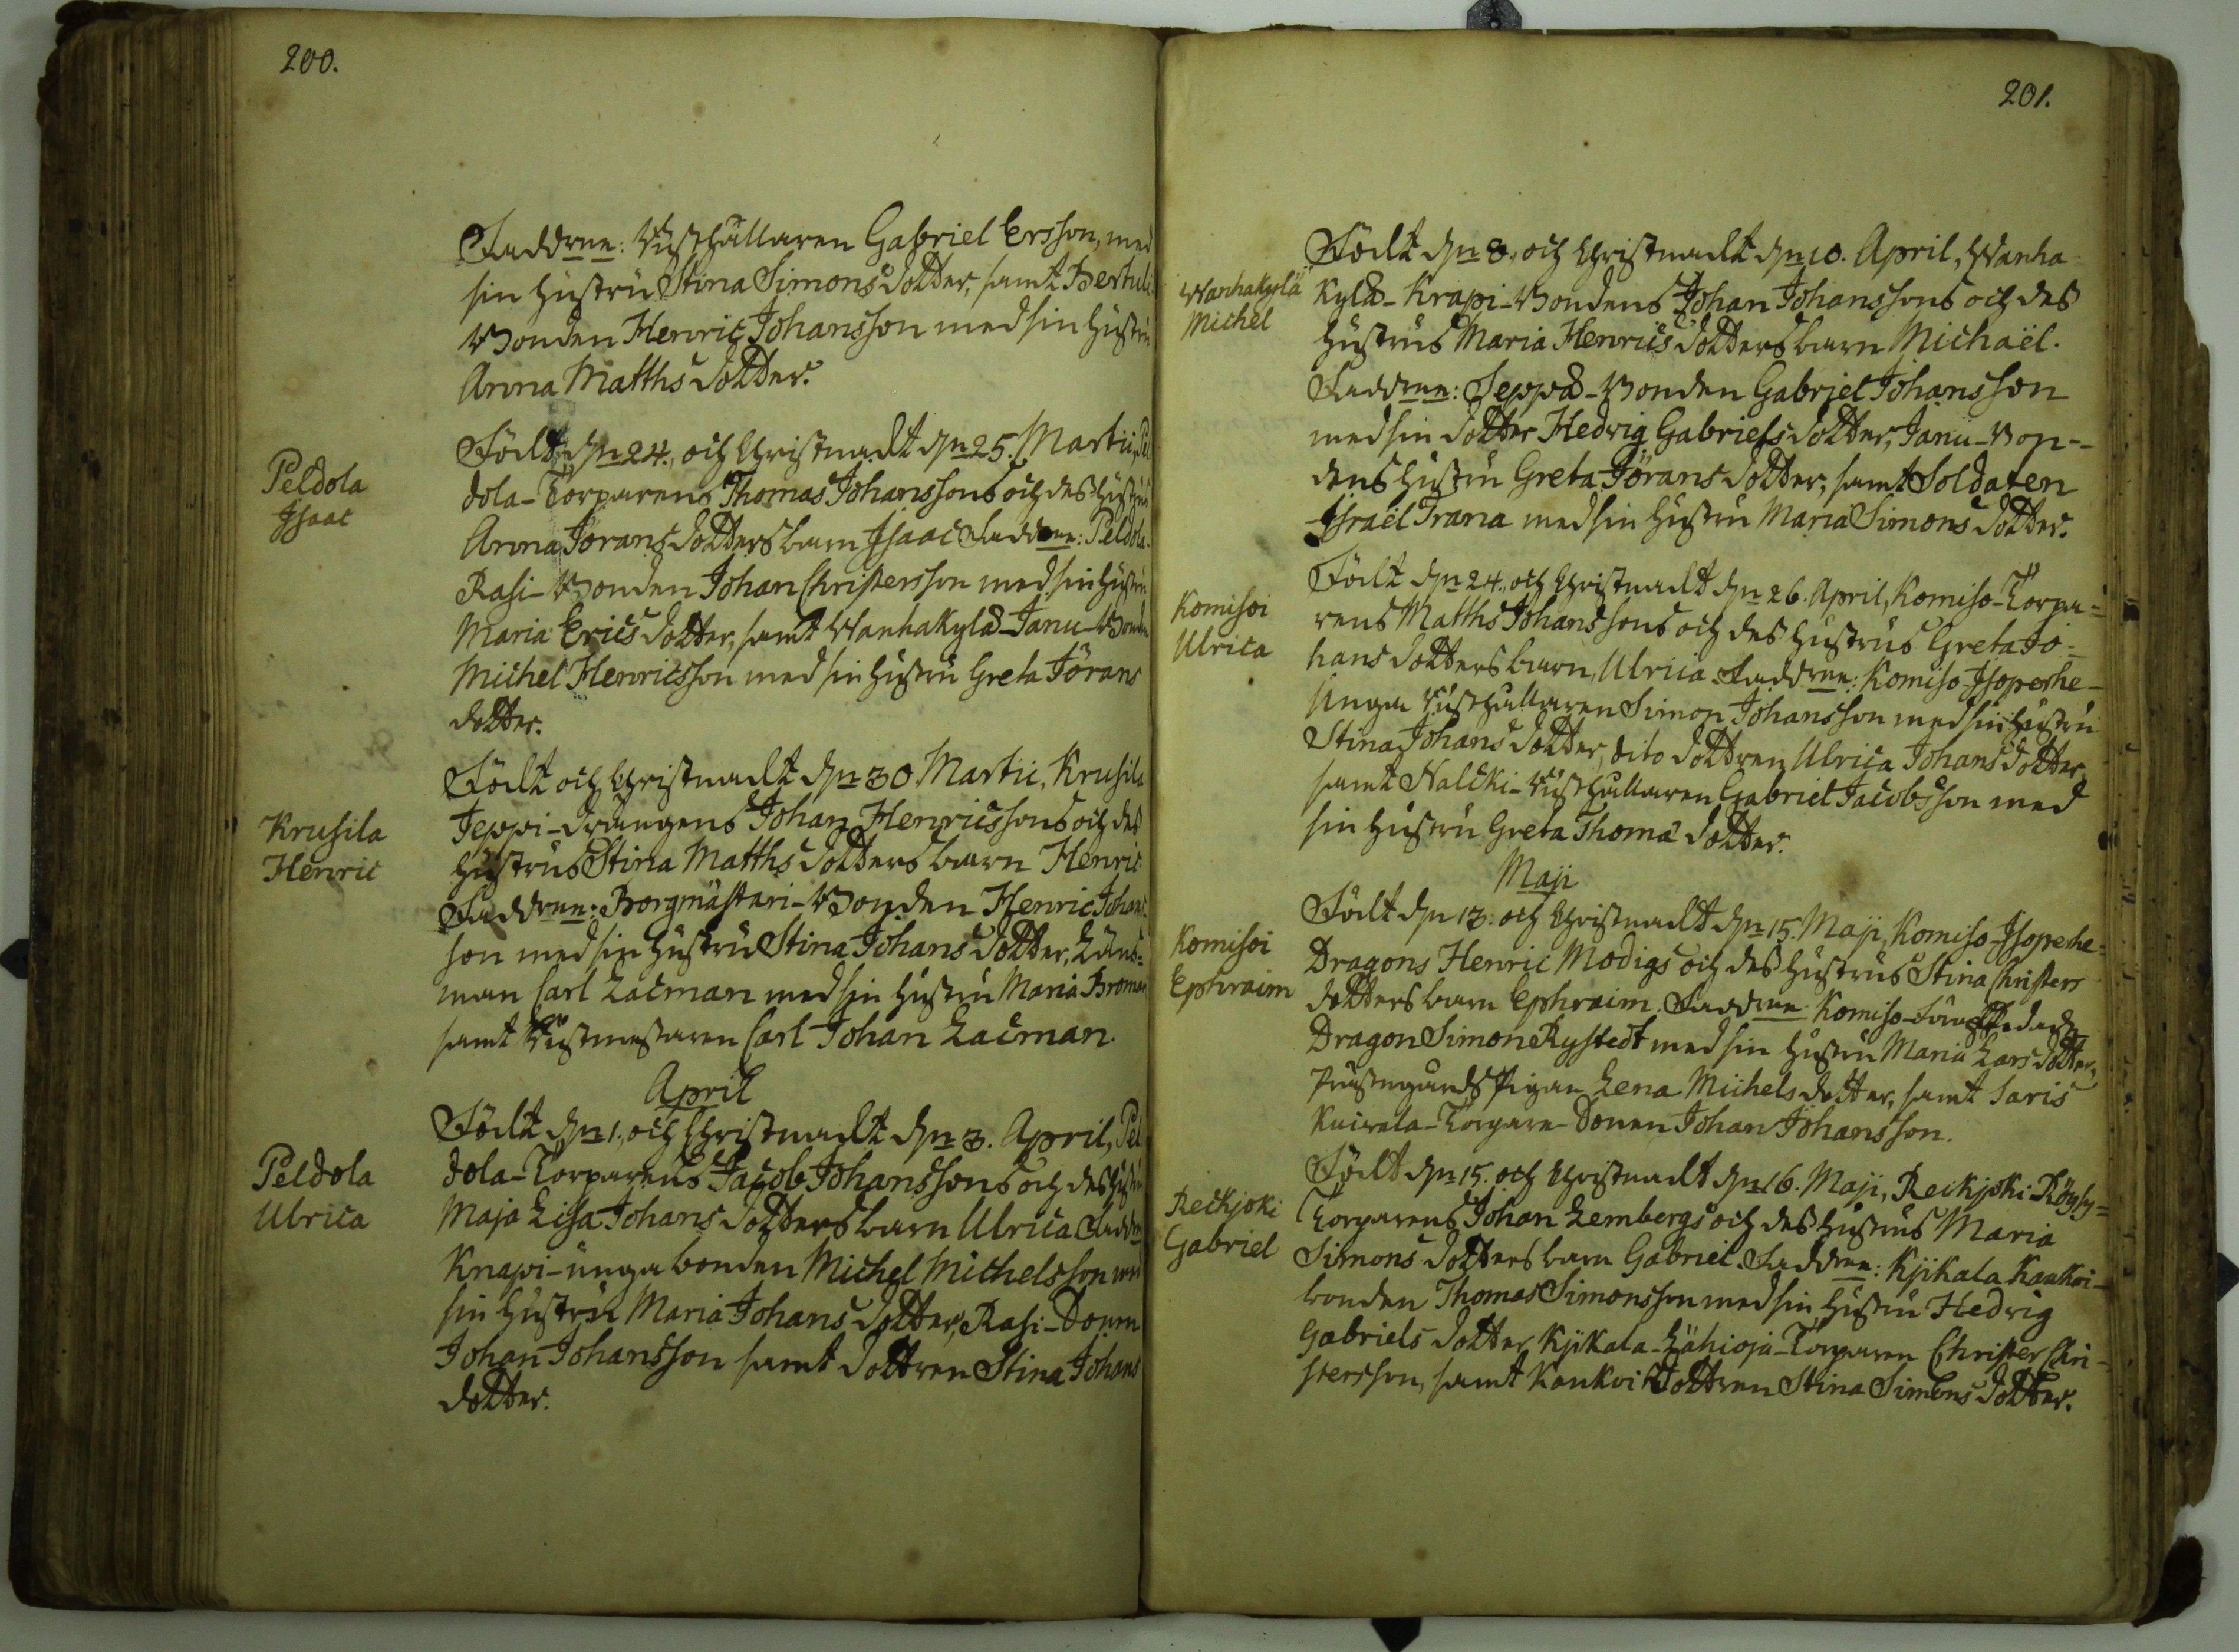 200.
Faddrne: Rusthållaren Gabriel Ersson, med
sin hustru Stina Simons dotter, samt Bertuli
Bonden Henric Johansson med sin hustru
Anna Matths dotter.
Peldola
Isaac
Född d:n 24., och Christnadt d:n 25. Martii, Pel
dola-Torparens Thomas Johanssons och dess hustrus
Anna Jörans dotters barn Isaac Faddrne: Peldola-
Rasi-Bonden Johan Christersson med sin hustru
Maria Erics dotter, samt Wanhakylä-Janu-Bonden
Michel Henricsson med sin hustru Greta Jörans
dotter.
Krusila
Henric
Född och Christnadt d:n 30 Martii, Krusila
Jeppi-drängens Johan Henricssons och dess
hustrus Stina Matths dotters barn Henric
Faddrne: Borgmästari-Bonden Henric Johans-
son med sin hustru Stina Johans dotter, Läns-
man Carl Lacman med sin hustru Maria Broman
samt Rustmästaren Carl Johan Lacman.
April
Peldola
Ulrica
Född d:n 1., och Christnadt d:n 3. April, Pel
dola-Torparens Jacob Johanssons och dess hustrus
Maja Lisa Johans dotters barn Ulrica Faddrne
Knapi-unga bonden Michel Michelsson med
sin hustru Maria Johans dotter, Rasi-Sonen
Johan Johansson samt dottren Stina Johans
dotter.
201.
Wanhakylä
Michel
Född d:n 8., och Christnadt d:n 10. April, Wanha
Kylä-Krapi-Bondens Johan Johanssons och dess
hustrus Maria Henrics dotters barn Michaël.
Faddrne: Seppä-Bonden Gabriel Johansson
med sin dotter Hedvig Gabriels dotter, Janu-Bon-
dens hustru Greta Jörans dotter, samt Soldaten
Israël Trana med sin hustru Maria Simons dotter.
Komisoi
Ulrica
Född d:n 24., och Christnadt d:n 26. April, Komiso-Torpa=
rens Matths Johanssons och dess hustrus Greta Jo=
hans dotters barn, Ulrica. Faddrne: Komiso-Isoperhe-
Unga Rusthållaren Simon Johansson med sin hustru
Stina Johans dotter, dito dottren Ulrica Johans dotter,
samt Nalcki-Rusthållaren Gabriel Jacobsson med
sin hustru Greta Thomæ dotter.
Maji
Komisoi
Ephraim
Född d:n 13. och Christnadt d:n 15. Maji, Komiso-Isoperhe=
Dragons Henric Modigs och dess hustrus Stina Christers
dotters barn Ephraim. Faddrne: Komiso-
Dragon Simon Rystedt med sin hustru Maria Lars dotter,
Prästegårds Pigan Lena Michels dotter, samt Saris
Kuivala-Torpare-Sonen Johan Johansson.
Reckjoki
Gabriel
Född d:n 15. och Christnadt d:n 16. Maji, Reckjoki-Röysy=
Torparens Johan Lembergs och dess hustrus Maria
Simons dotters barn Gabriel. Faddrne: Kjikala Kankoi-
bonden Thomas Simonsson med sin hustru Hedvig
Gabriels dotter, Kjikala-Lähioja-Torparen Christer Chri-
stersson, samt Kankoi dottren Stina Simons dotter.